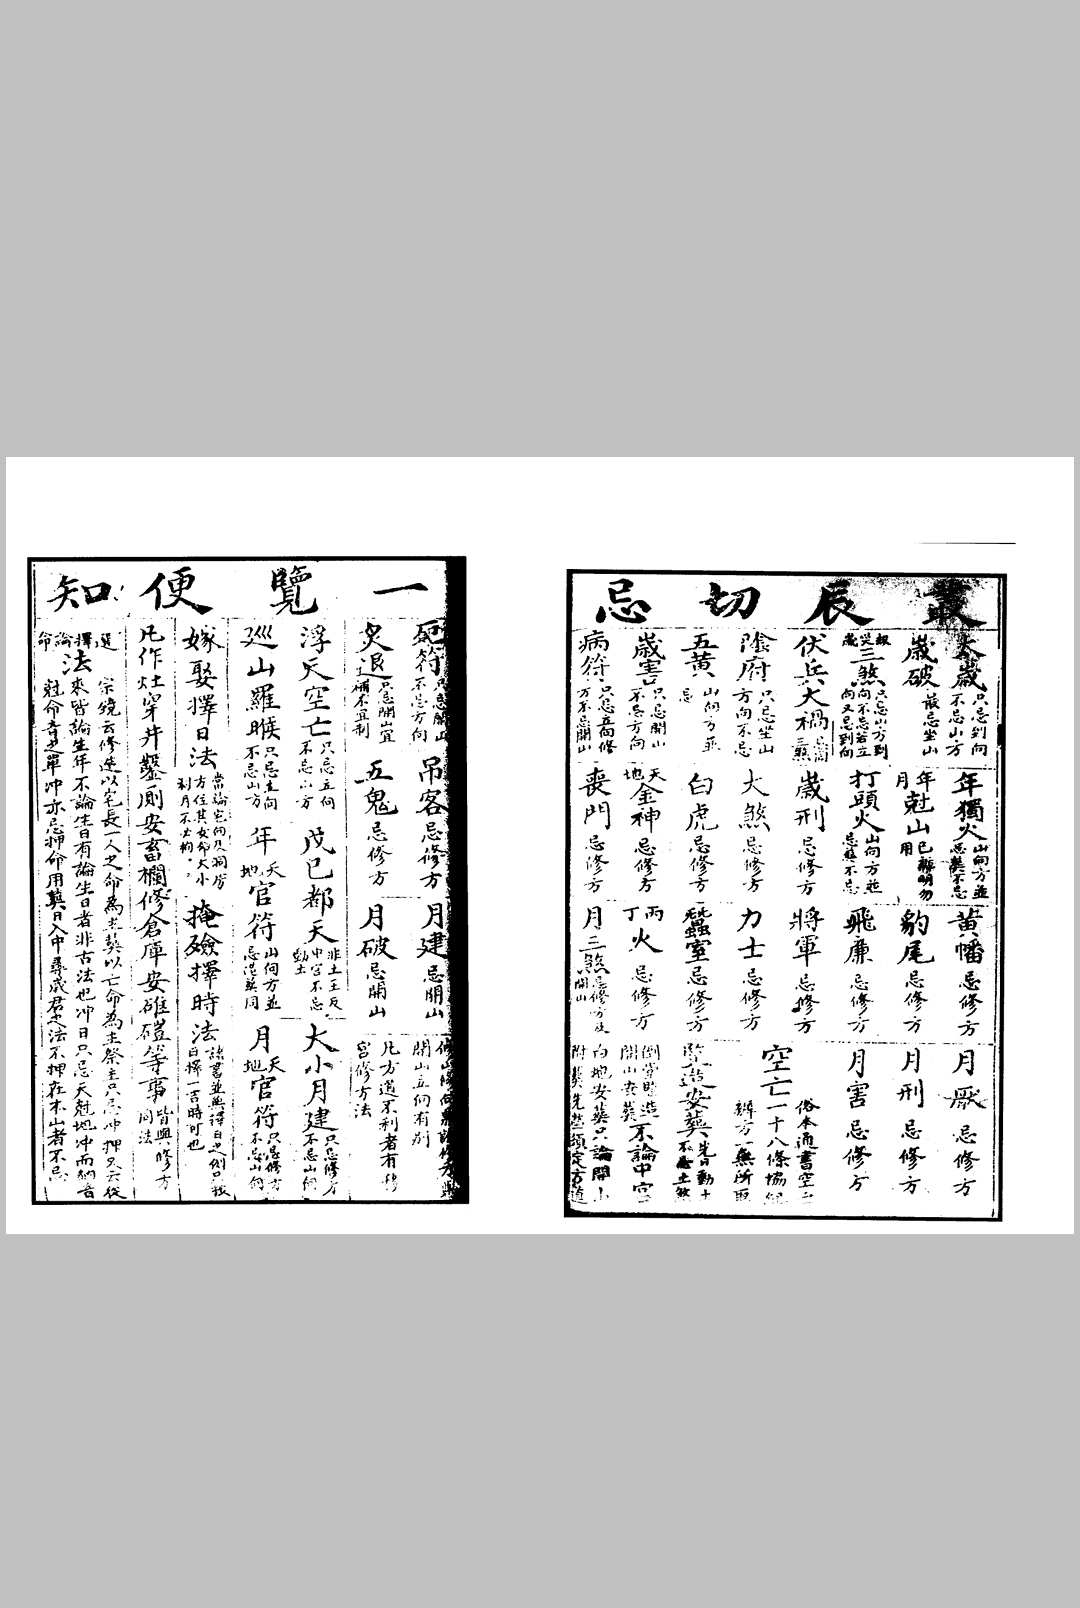 叢辰切忌
太歲 只忌到向不忌山方
歲破 最忌坐山
三煞 只忌山方到向不忌若立向又忌到向
伏兵大禍
陰府 只忌坐山方向不忌
五黃 山向方並忌
歲害 只忌開山不忌方向
病符 只忌修方不忌開山
年獨火 山向方並忌葬不忌
年月尅山 已辨明勿用
打頭火 山向方並忌葬不忌
歲刑 忌修方
大煞 忌修方
白虎 忌修方
天地金神 忌修方
喪門 忌修方
黃幡 忌修方
豹尾 忌修方
飛廉 忌修方
將軍 忌修方
力士 忌修方
蠶室 忌修方
丙丁火 忌修方
月三煞 忌修方及開山
月厭 忌修方
月刑 忌修方
月害 忌修方
空亡 俗本通書空亡一十八條
豎造安葬
倒堂豎造開山安葬不論中宮
白地安葬只論開山
附葬先塋須定方道
一覽便知
死符 只忌開山不忌方向
炙退 只忌開山宜補不宜制
浮天空亡 只忌立向不忌山方
巡山羅睺 只忌立向不忌山方
嫁娶擇日法 當論宅向及祠房方位其女命大小利月不必拘
凡作灶穿井鑿厠安畜欄修倉庫安碓磑等事 皆與修方同法
吊客 忌修方
五鬼 忌修方
戊己都天 非土王及中宮不忌動土
年天地官符 山向方並忌造葬同
月建 忌開山
月破 忌開山
大小月建 只忌修方不忌山向
月天地官符 只忌修方不忌山向
掩殮擇時法 諸書並無擇日之例只報日擇一吉時可也
開山立向有別
凡方道不利者有移宮修方法
選擇論命法 宗鏡云修造以宅長一人之命為主葬以亡命為主祭主只忌冲押
來皆論生年不論生日有論生日者非古法也冲日只忌天尅地冲而納音
尅命音之單冲亦忌押命用葬日入中尋歲君之法不押在本山者不忌